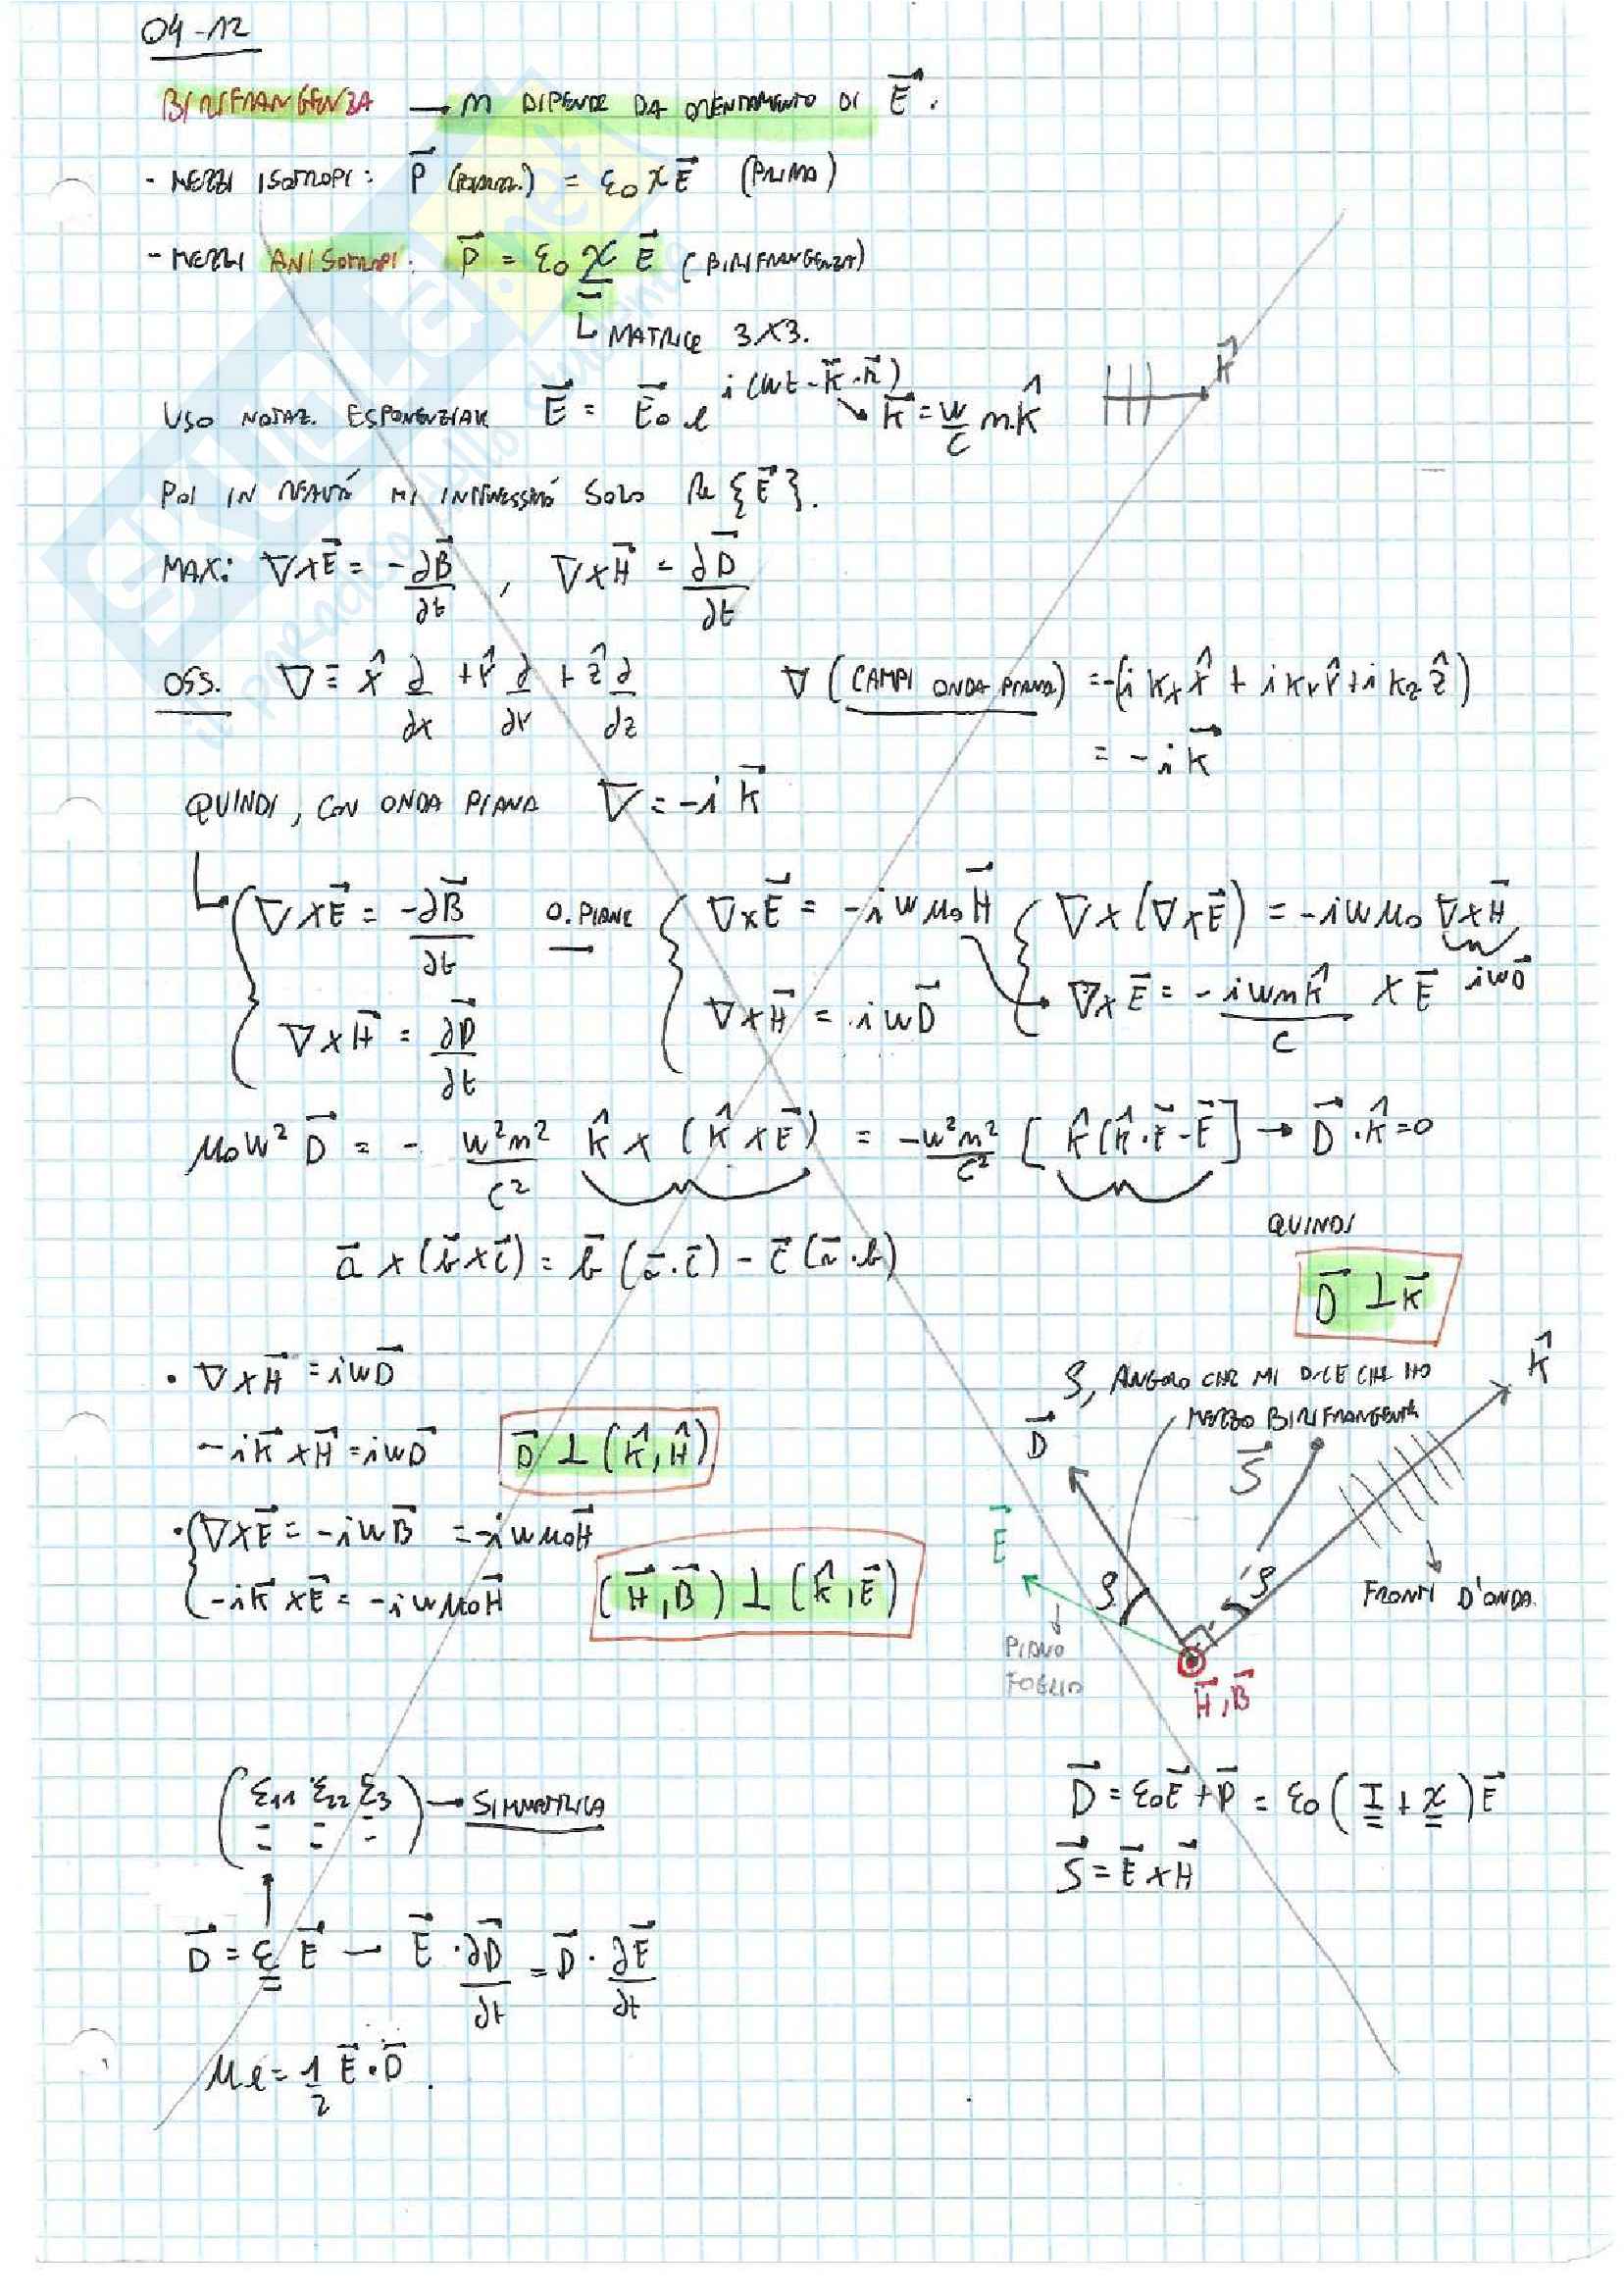 04-12
BIRIFRANGENZA → n DIPENDE DA ORIENTAMENTO DI E⃗.
- MEZZI ISOTROPI: P⃗ (POLARIZZ.) = ε₀ χ E⃗ (PRIMO)
- MEZZI ANISOTROPI: P⃗ = ε₀ χ E⃗ (BIRIFRANGENZA)
↳ MATRICE 3X3.
USO NOTAZ. ESPONENZIALE E⃗ = E⃗₀ e^{i(ωt - k⃗·r⃗)} ↘ k⃗ = ω/c n·k̂
k⃗
POI IN REALTÀ MI INTERESSERÀ SOLO Re{E⃗}.
MAX: ∇×E⃗ = -∂B⃗/∂t , ∇×H⃗ = ∂D⃗/∂t
OSS. ∇ ≡ x̂ ∂/∂x + ŷ ∂/∂y + ẑ ∂/∂z ∇ (CAMPI ONDA PIANA) = -(i kx x̂ + i ky ŷ + i kz ẑ)
= -i k⃗
QUINDI, CON ONDA PIANA ∇ = -i k⃗
↳ { ∇×E⃗ = -∂B⃗/∂t O. PIANE → { ∇×E⃗ = -iωμ₀H⃗ { ∇×(∇×E⃗) = -iωμ₀ ∇×H⃗
∇×H⃗ = ∂D⃗/∂t ∇×H⃗ = iωD⃗ → ∇×E⃗ = -iωn k̂/c × E⃗ iωD⃗
μ₀ω² D⃗ = - ω²n²/c² k̂ × (k̂ × E⃗) = -ω²n²/c² [k̂(k̂·E⃗-E⃗] → D⃗·k̂=0
a⃗ × (b⃗×c⃗) = b⃗ (a⃗·c⃗) - c⃗ (a⃗·b)
QUINDI
D⃗ ⊥ k⃗
• ∇×H⃗ = iωD⃗
-ik⃗×H⃗ = iωD⃗ D⃗ ⊥ (k̂, Ĥ)
• { ∇×E⃗ = -iωB⃗ = -iωμ₀H⃗
-ik⃗×E⃗ = -iωμ₀H⃗ (H⃗, B⃗) ⊥ (k̂, E⃗)
ρ, ANGOLO CHE MI DICE CHE HO
MEZZO BIRIFRANGENTE
k̂
D⃗
S⃗
E⃗
ρ
ρ
FRONTI D'ONDA
PIANO
FOGLIO
H⃗, B⃗
(ε₁₁ ε₂₂ ε₃) → SIMMETRICA
D⃗ = ε₀E⃗ + P⃗ = ε₀ (I + χ) E⃗
S⃗ = E⃗ × H⃗
D⃗ = ε E⃗ — E⃗ · ∂D⃗/∂t = D⃗ · ∂E⃗/∂t
Ue = 1/2 E⃗·D⃗.